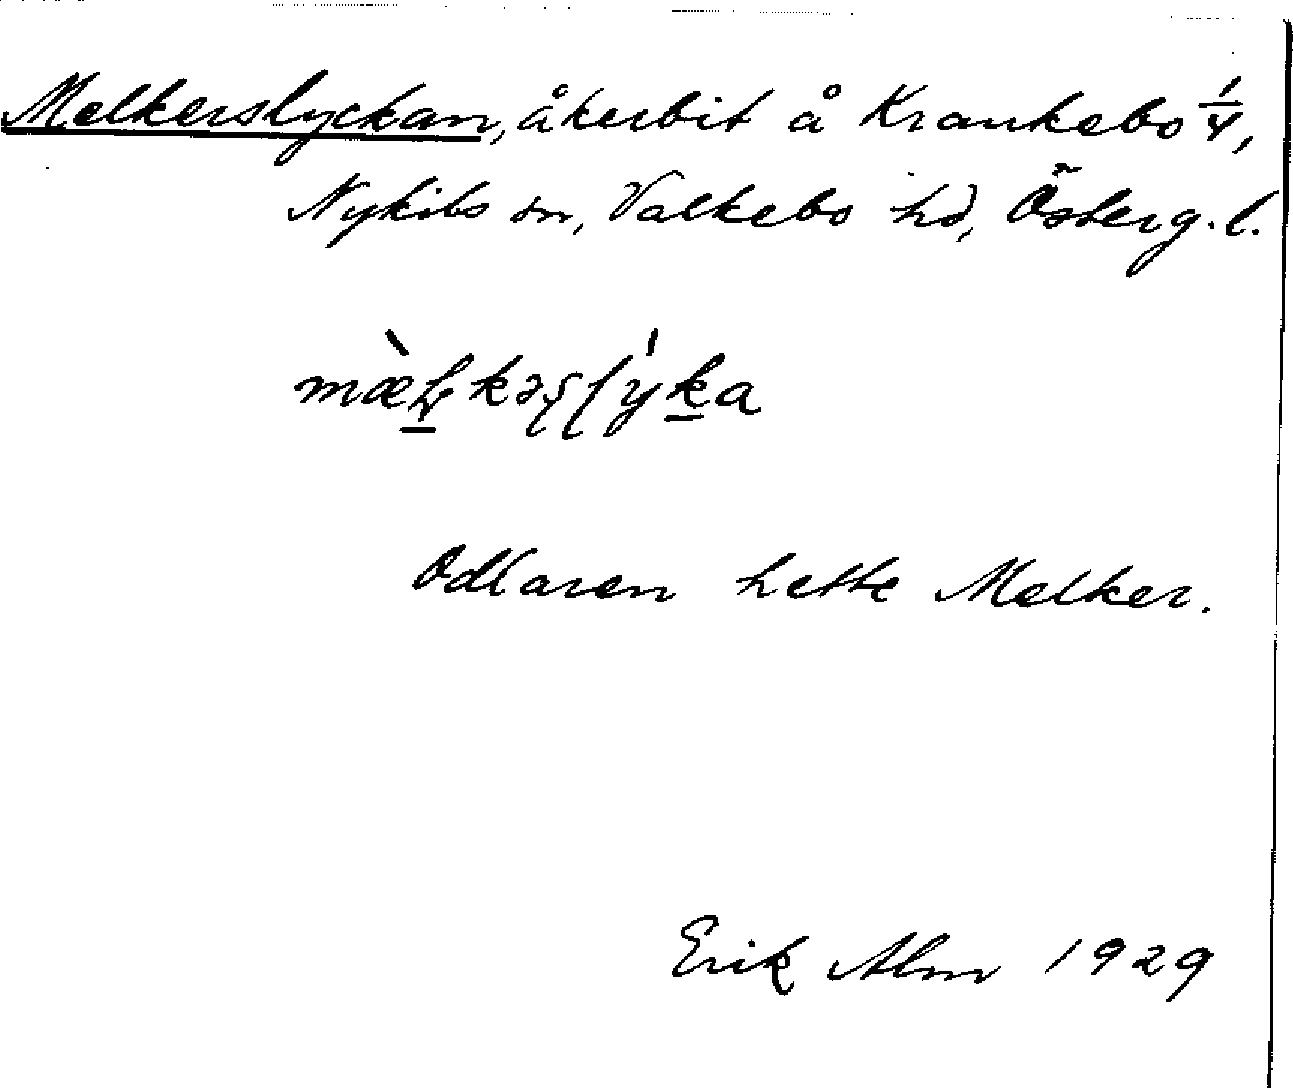 Melkerslyckan, åkerbit å Krankebo 1/4,
Nykils sn, Valkebo hd, Österg. l.
Odlaren hette Melker.
Erik Alm 1929